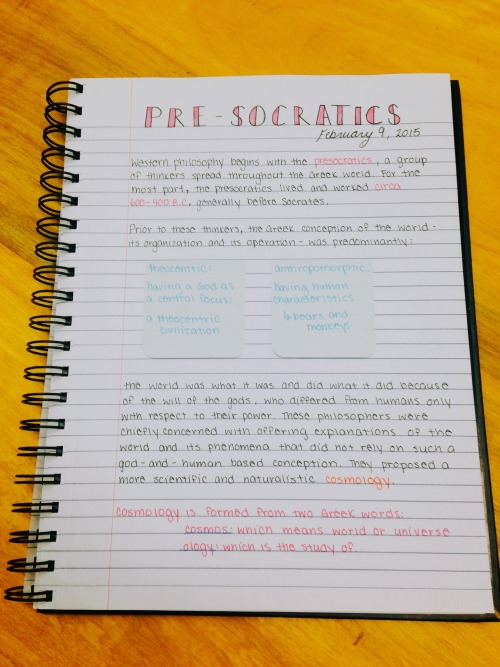 PRE-SOCRATICS
February 9, 2015
Western philosophy begins with the presocratics, a group
of thinkers spread throughout the Greek world. For the
most part, the presocratics lived and worked circa
600-400 B.C, generally before Socrates.
Prior to these thinkers, the Greek conception of the world -
its organization and its operation - was predominantly:
theocentric:
having a God as
a central focus.
a theocentric
civilization
anthropomorphic:
having human
characteristics
↳ bears and
monkeys
the world was what it was and did what it did because
of the will of the gods, who differed from humans only
with respect to their power. These philosophers were
chiefly concerned with offering explanations of the
world and its phenomena that did not rely on such a
god-and-human based conception. They proposed a
more scientific and naturalistic cosmology.
cosmology is formed from two Greek words:
cosmos: which means world or universe
ology: which is the study of.